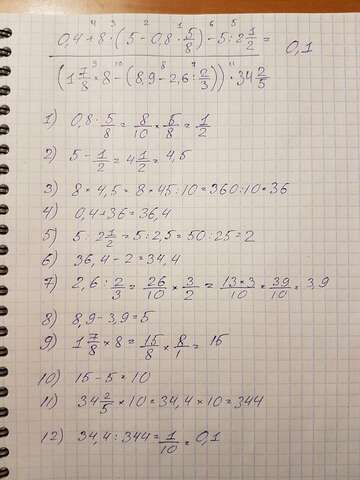 4 3 2 1 6 5
0,4+8·(5-0,8·5/8)-5:2 1/2 = 0,1
9 10 8 7 11
(1 7/8×8-(8,9-2,6:2/3))·34 2/5
1) 0,8·5/8=8/10×5/8=1/2
2) 5-1/2=4 1/2=4,5
3) 8×4,5=8×45:10=360:10=36
4) 0,4+36=36,4
5) 5:2 1/2=5:2,5=50:25=2
6) 36,4-2=34,4
7) 2,6:2/3=26/10×3/2=13×3/10=39/10=3,9
8) 8,9-3,9=5
9) 1 7/8×8=15/8×8/1=15
10) 15-5=10
11) 34 2/5×10=34,4×10=344
12) 34,4:344=1/10=0,1